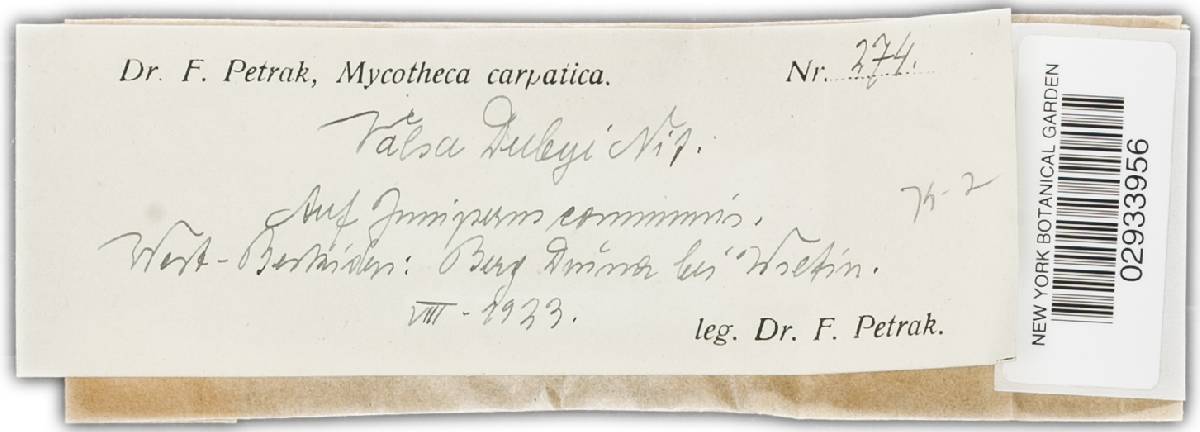 Dr. F. Petrak, Mycotheca carpatica. Nr. 274.
Valsa Dubyi Nit.
Auf Juniperus communis.
West-Beskiden: Berg Dušna bei Wsetin.
VIII - 1923.
leg. Dr. F. Petrak.
NEW YORK BOTANICAL GARDEN
02933956